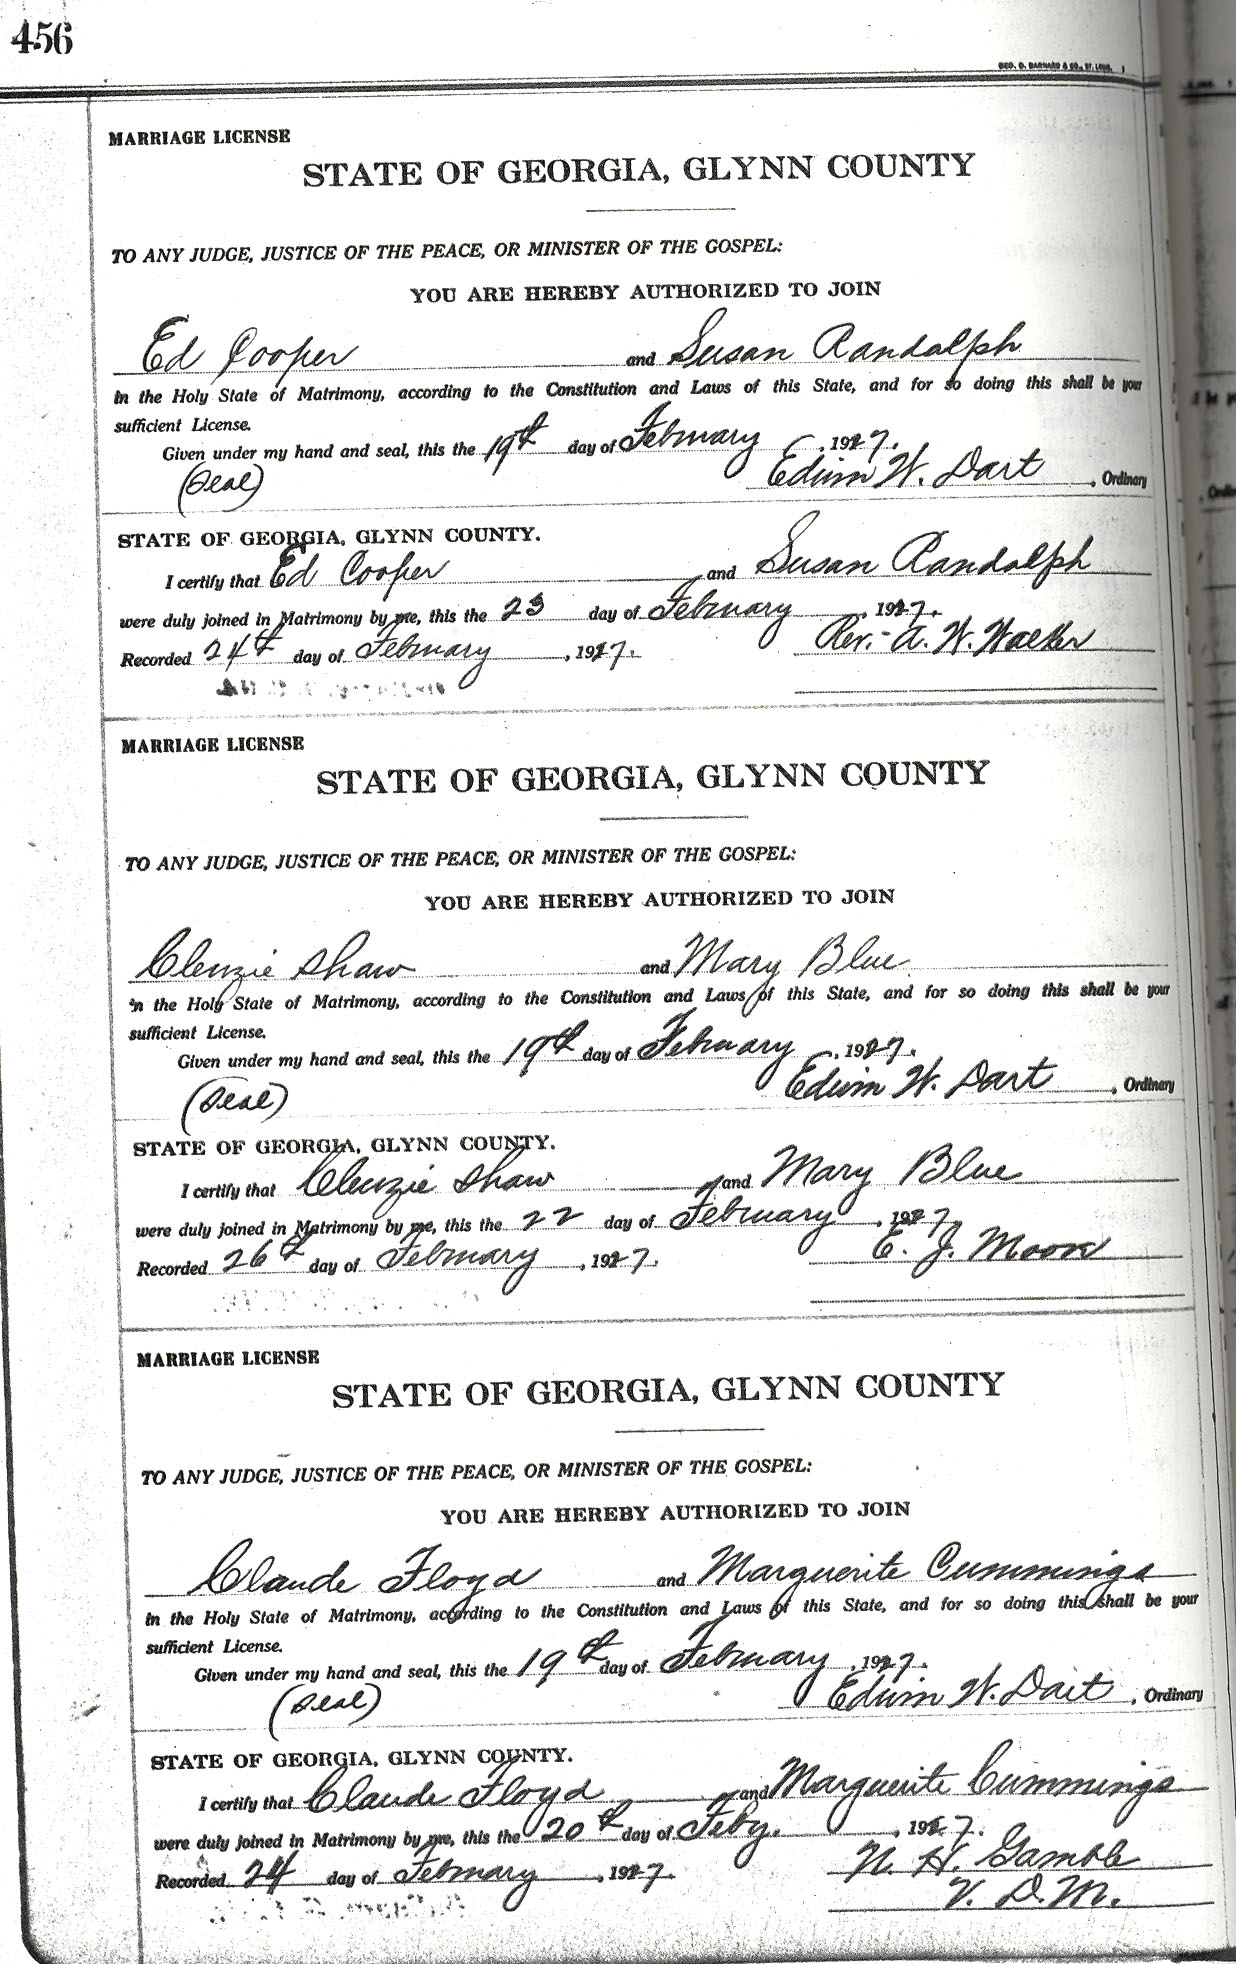 456
GEO. D. BARNARD & CO., ST. LOUIS.
MARRIAGE LICENSE
STATE OF GEORGIA, GLYNN COUNTY
TO ANY JUDGE, JUSTICE OF THE PEACE, OR MINISTER OF THE GOSPEL:
YOU ARE HEREBY AUTHORIZED TO JOIN
Ed Cooper and Susan Randolph
in the Holy State of Matrimony, according to the Constitution and Laws of this State, and for so doing this shall be your
sufficient License.
Given under my hand and seal, this the 19th day of February, 1927.
(Seal) Edwin W. Dart, Ordinary
STATE OF GEORGIA, GLYNN COUNTY.
I certify that Ed Cooper and Susan Randolph
were duly joined in Matrimony by me, this the 23 day of February, 1927.
Recorded 24th day of February, 1927. Rev. A. W. Walker
MARRIAGE LICENSE
STATE OF GEORGIA, GLYNN COUNTY
TO ANY JUDGE, JUSTICE OF THE PEACE, OR MINISTER OF THE GOSPEL:
YOU ARE HEREBY AUTHORIZED TO JOIN
Clenzie Shaw and Mary Blue
in the Holy State of Matrimony, according to the Constitution and Laws of this State, and for so doing this shall be your
sufficient License.
Given under my hand and seal, this the 19th day of February, 1927.
(Seal) Edwin W. Dart, Ordinary
STATE OF GEORGIA, GLYNN COUNTY.
I certify that Clenzie Shaw and Mary Blue
were duly joined in Matrimony by me, this the 22 day of February, 1927.
Recorded 26th day of February, 1927. E. J. Moore
MARRIAGE LICENSE
STATE OF GEORGIA, GLYNN COUNTY
TO ANY JUDGE, JUSTICE OF THE PEACE, OR MINISTER OF THE GOSPEL:
YOU ARE HEREBY AUTHORIZED TO JOIN
Claude Floyd and Marguerite Cummings
in the Holy State of Matrimony, according to the Constitution and Laws of this State, and for so doing this shall be your
sufficient License.
Given under my hand and seal, this the 19th day of February, 1927.
(Seal) Edwin W. Dart, Ordinary
STATE OF GEORGIA, GLYNN COUNTY.
I certify that Claude Floyd and Marguerite Cummings
were duly joined in Matrimony by me, this the 20th day of Feby., 1927.
Recorded 24 day of February, 1927. N. H. Gamble
V. D. M.